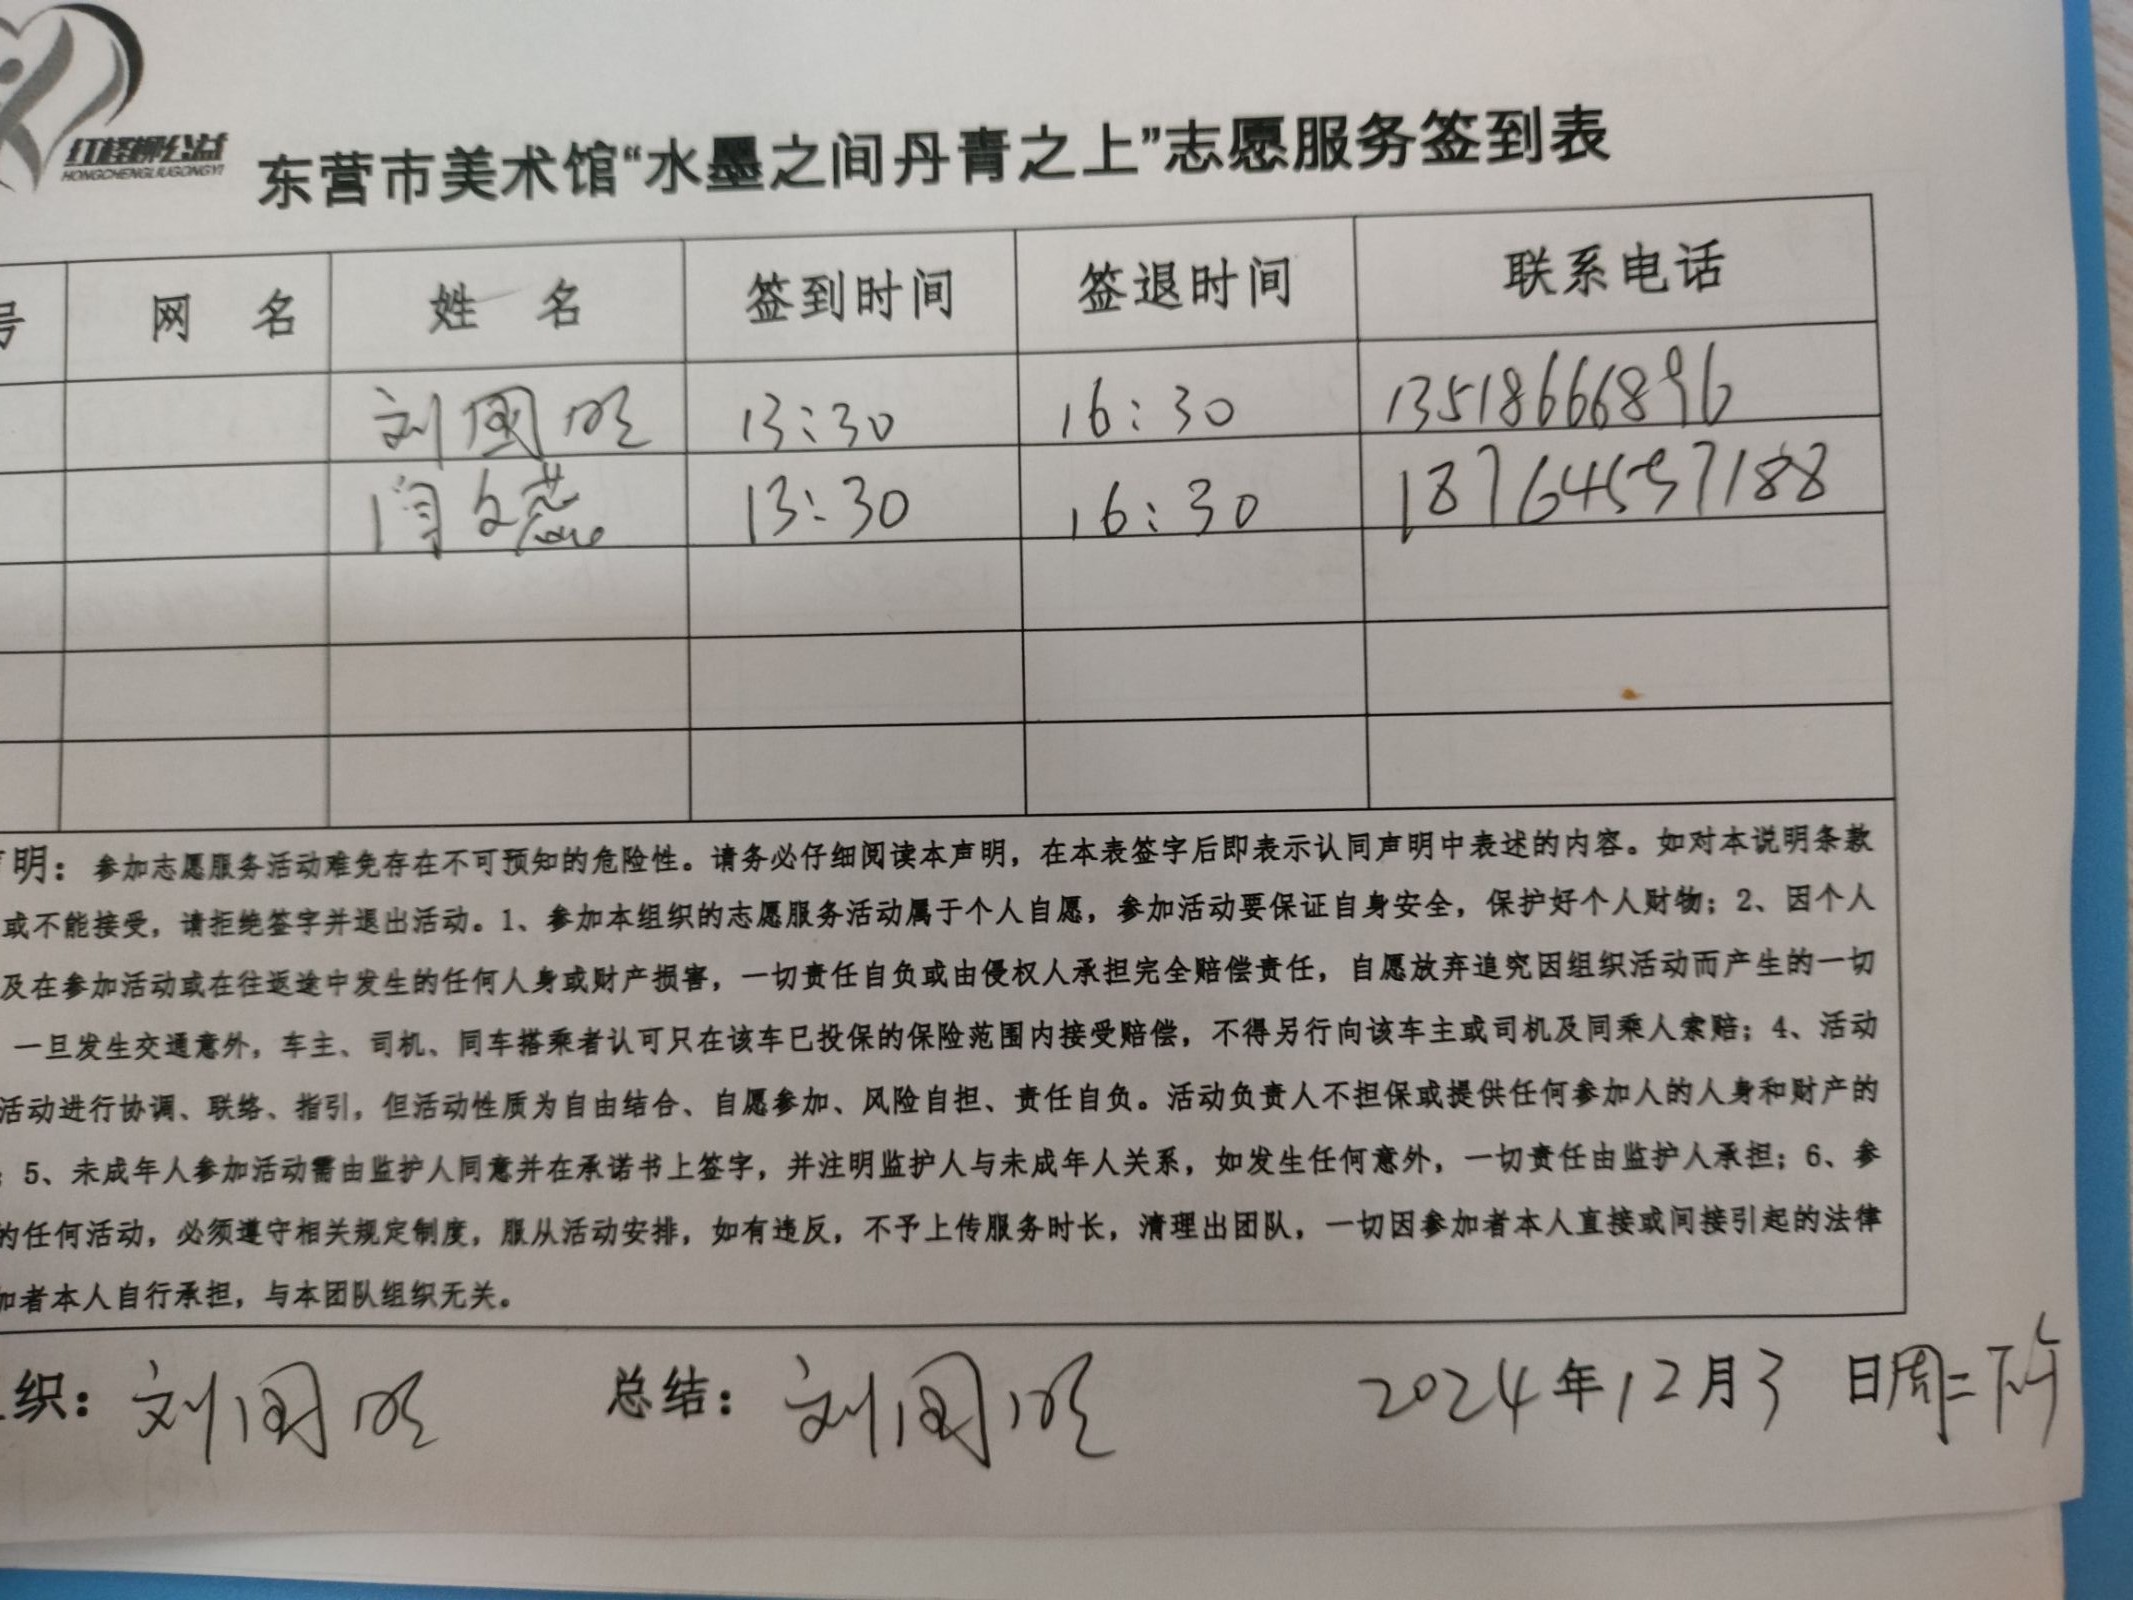 红柽柳公益
HONGCHENGLIUGONGYI
东营市美术馆“水墨之间丹青之上”志愿服务签到表
号 网 名 姓 名 签到时间 签退时间 联系电话
刘国明 13:30 16:30 13518666896
闫文燕 13:30 16:30 18764537188
声明：参加志愿服务活动难免存在不可预知的危险性。请务必仔细阅读本声明，在本表签字后即表示认同声明中表述的内容。如对本说明条款
或不能接受，请拒绝签字并退出活动。1、参加本组织的志愿服务活动属于个人自愿，参加活动要保证自身安全，保护好个人财物；2、因个人
及在参加活动或在往返途中发生的任何人身或财产损害，一切责任自负或由侵权人承担完全赔偿责任，自愿放弃追究因组织活动而产生的一切
一旦发生交通意外，车主、司机、同车搭乘者认可只在该车已投保的保险范围内接受赔偿，不得另行向该车主或司机及同乘人索赔；4、活动
活动进行协调、联络、指引，但活动性质为自由结合、自愿参加、风险自担、责任自负。活动负责人不担保或提供任何参加人的人身和财产的
；5、未成年人参加活动需由监护人同意并在承诺书上签字，并注明监护人与未成年人关系，如发生任何意外，一切责任由监护人承担；6、参
的任何活动，必须遵守相关规定制度，服从活动安排，如有违反，不予上传服务时长，清理出团队，一切因参加者本人直接或间接引起的法律
加者本人自行承担，与本团队组织无关。
织：刘国明 总结：刘国明 2024年12月3日周二下午